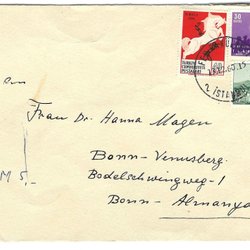 30
TÜRKİYE
CUMHURİYETİ
POSTALARI
60
2 İSTANBUL
Frau Dr. Hanna Magen
Bonn-Venusberg.
Bodelschwingweg-1
Bonn - Almanya
M 5.-